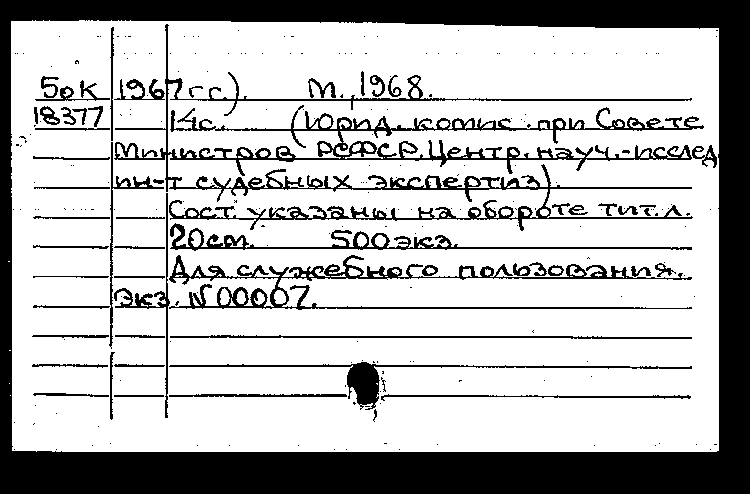 5оК 1967гг). М., 1968.
18377 14с. (Юрид. комис. при Совете
Министров РСФСР. Центр. науч.-исслед.
ин-т судебных экспертиз).
Сост. указаны на обороте тит. л.
20см. 500экз.
Для служебного пользования.
Экз. N 00007.